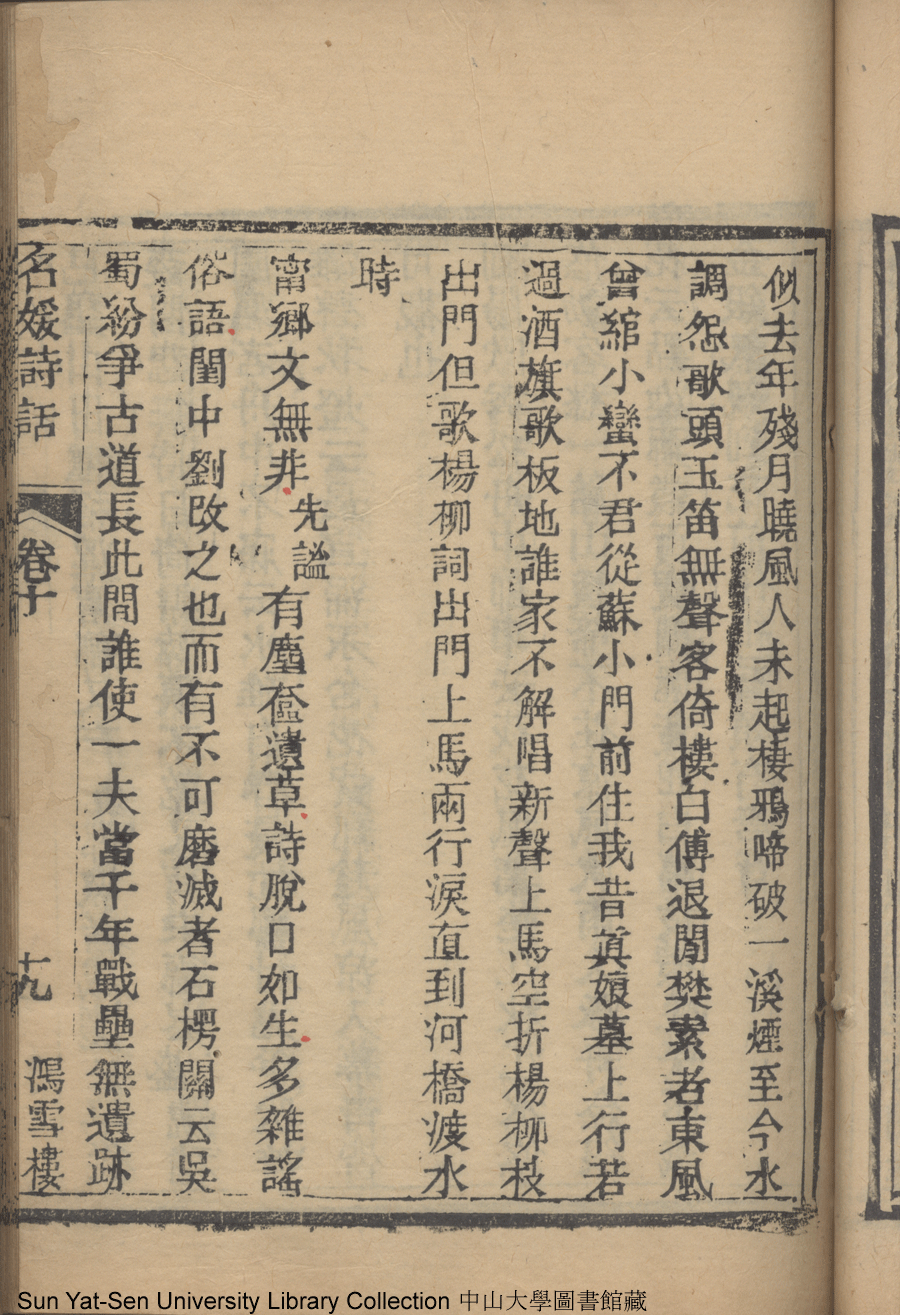 似去年殘月曉風人未起棲鴉啼破一溪煙至今水
調怨歌頭玉笛無聲客倚樓白傅退閒樊素老東風
曾綰小蠻不君從蘇小門前住我昔眞娘墓上行若
過酒旗歌板地誰家不解唱新聲上馬空折楊柳枝
出門但歌楊柳詞出門上馬兩行淚直到河橋渡水
時
甯鄉文無非先謐有塵奩遺草詩脫口如生多雜謠
俗語閨中劉改之也而有不可磨滅者石楞關云吳
蜀紛爭古道長此間誰使一夫當千年戰壘無遺跡
名媛詩話
卷十
十九
鴻雪樓
Sun Yat-Sen University Library Collection 中山大學圖書館藏